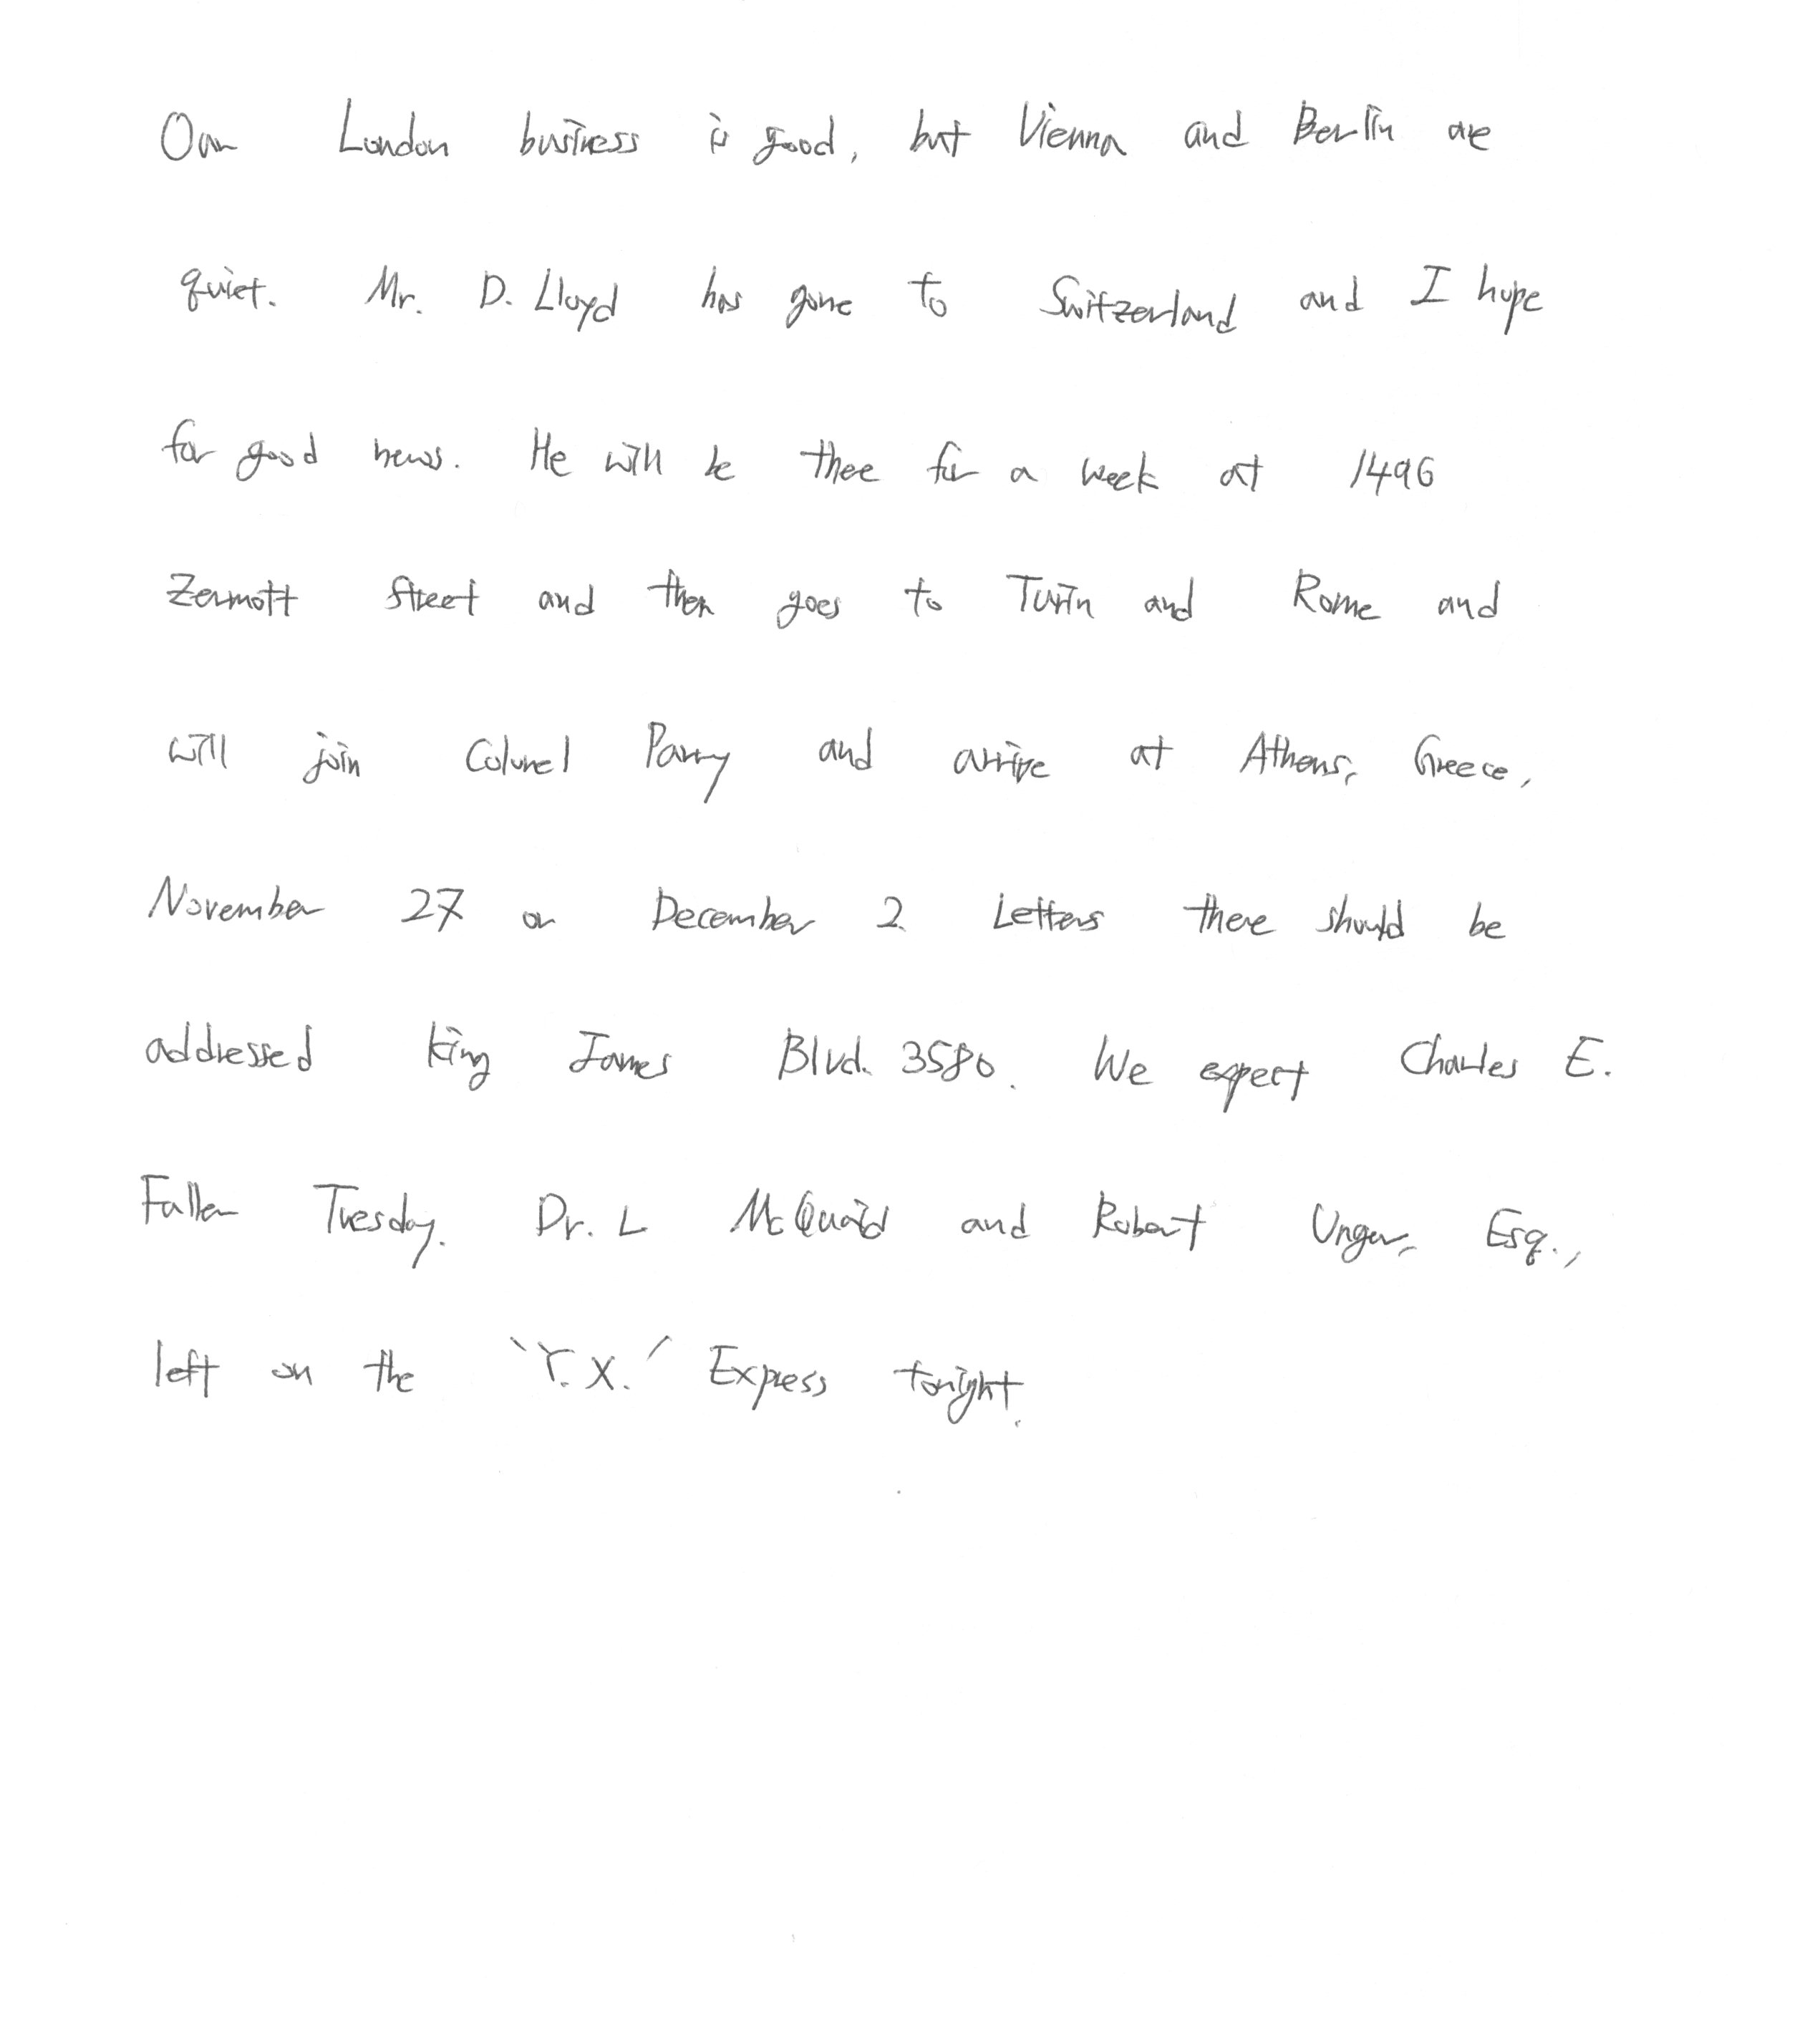 Our London business is good, but Vienna and Berlin are
quiet. Mr. D. Lloyd has gone to Switzerland and I hope
for good news. He will be there for a week at 1496
Zermott Street and then goes to Turin and Rome and
will join Colonel Parry and arrive at Athens, Greece,
November 27 or December 2. Letters there should be
addressed King James Blvd. 3580. We expect Charles E.
Fuller Tuesday. Dr. L McQuaid and Robert Unger, Esq.,
left on the "Y.X." Express tonight.